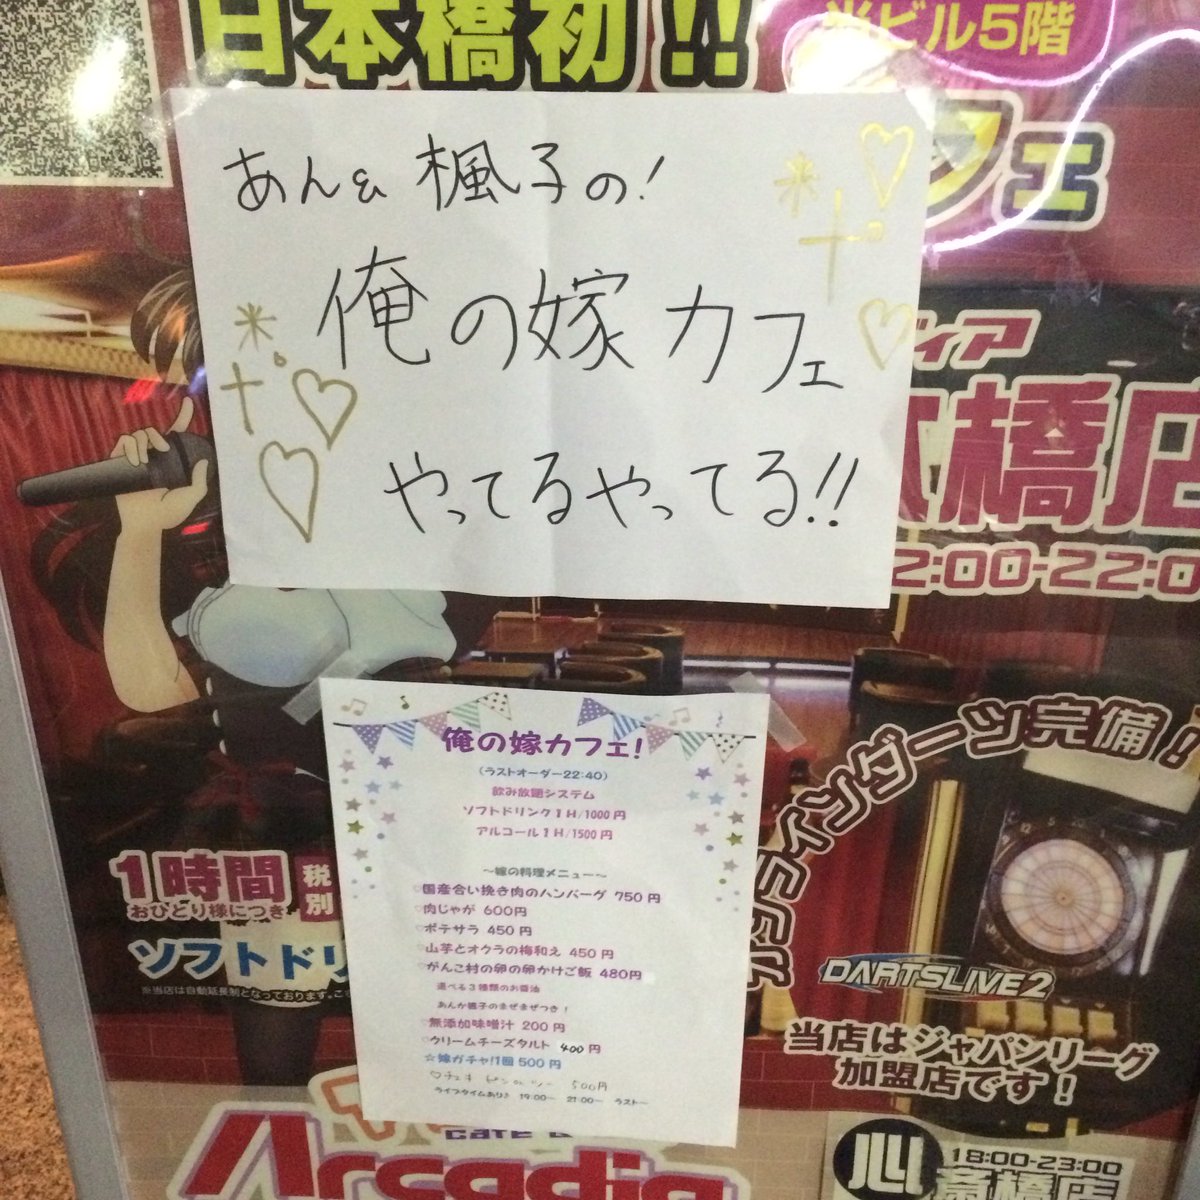 日本橋初!!
ビル5階
フェ
あん& 楓子の!
俺の嫁カフェ
やってるやってる!!
ィア
橋店
2:00-22:0
俺の嫁カフェ!
(ラストオーダー22:40)
飲み放題システム
ソフトドリンク1H/1000円
アルコール1H/1500円
~嫁の料理メニュー~
♡国産合い挽き肉のハンバーグ 750円
♡肉じゃが 600円
♡ポテサラ 450円
♡山芋とオクラの梅和え 450円
♡がんこ村の卵の卵かけご飯 480円
選べる3種類のお醤油
あんか楓子のまぜまぜつき!
♡無添加味噌汁 200円
♡クリームチーズタルト 400円
☆嫁ガチャ!1回500円
♡チェキ 500円
ライブタイムあり♪ 19:00~ 21:00~ ラスト~
オンラインダーツ完備!
1時間 税別
おひとり様につき
ソフトドリ
※当店は自動延長制となっております。
DARTSLIVE2
当店はジャパンリーグ
加盟店です!
Arcadia
18:00-23:00
心斎橋店